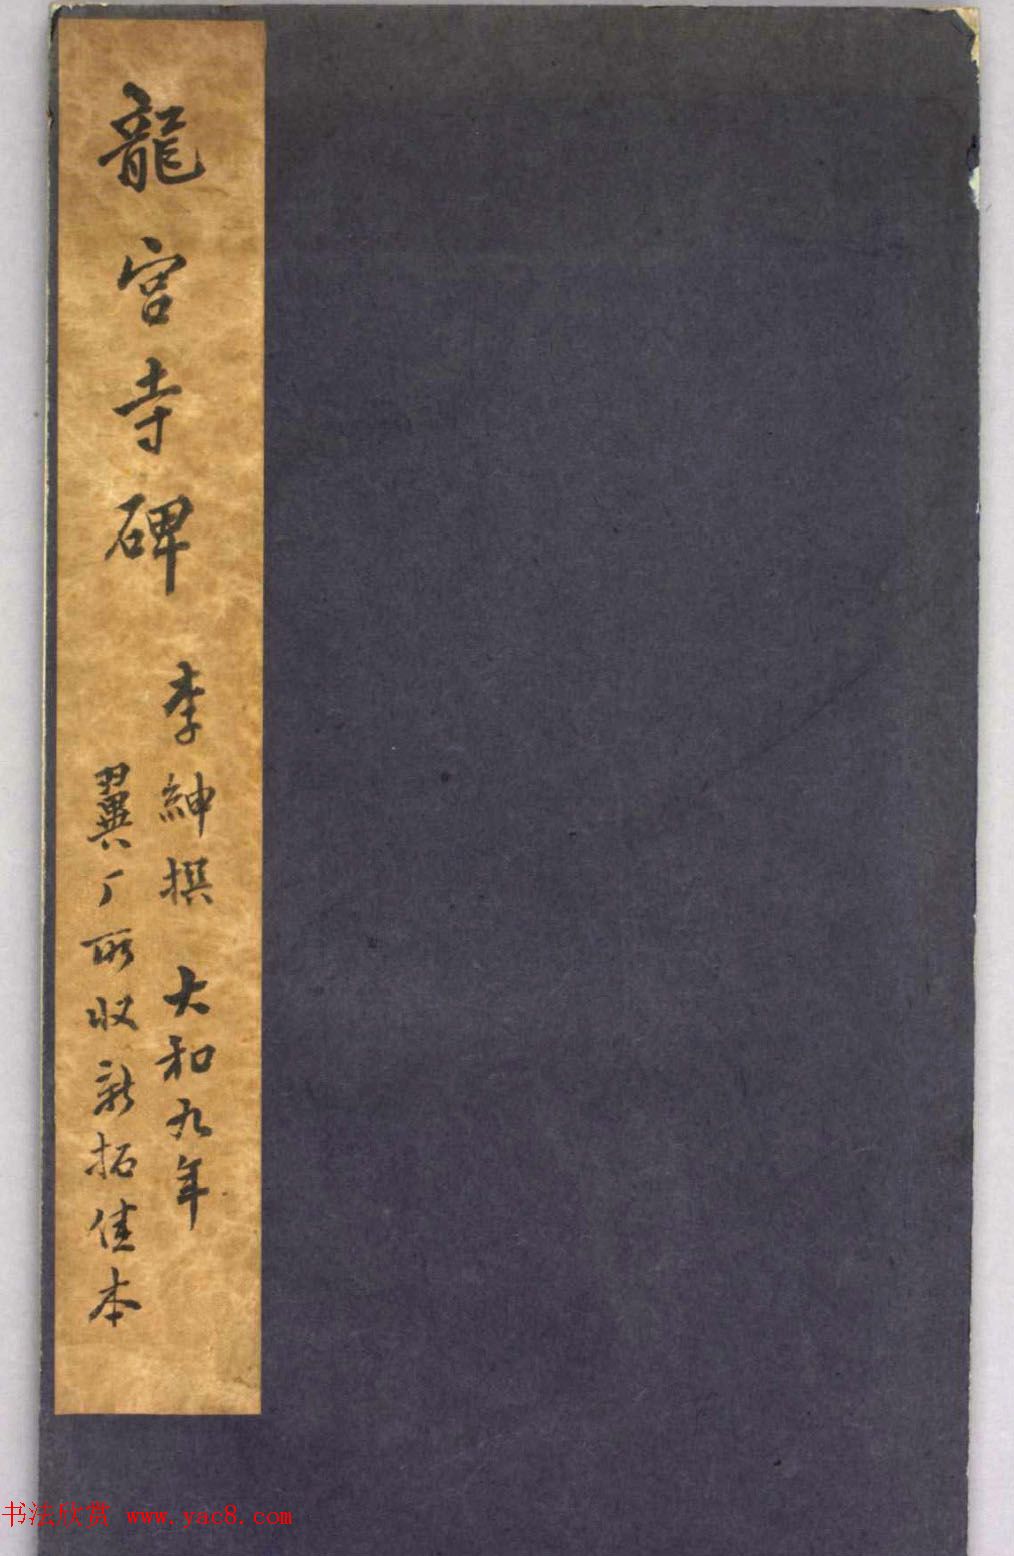 龍宮寺碑
李紳撰 大和九年
翼厂所收新拓佳本
书法欣赏 www.yac8.com